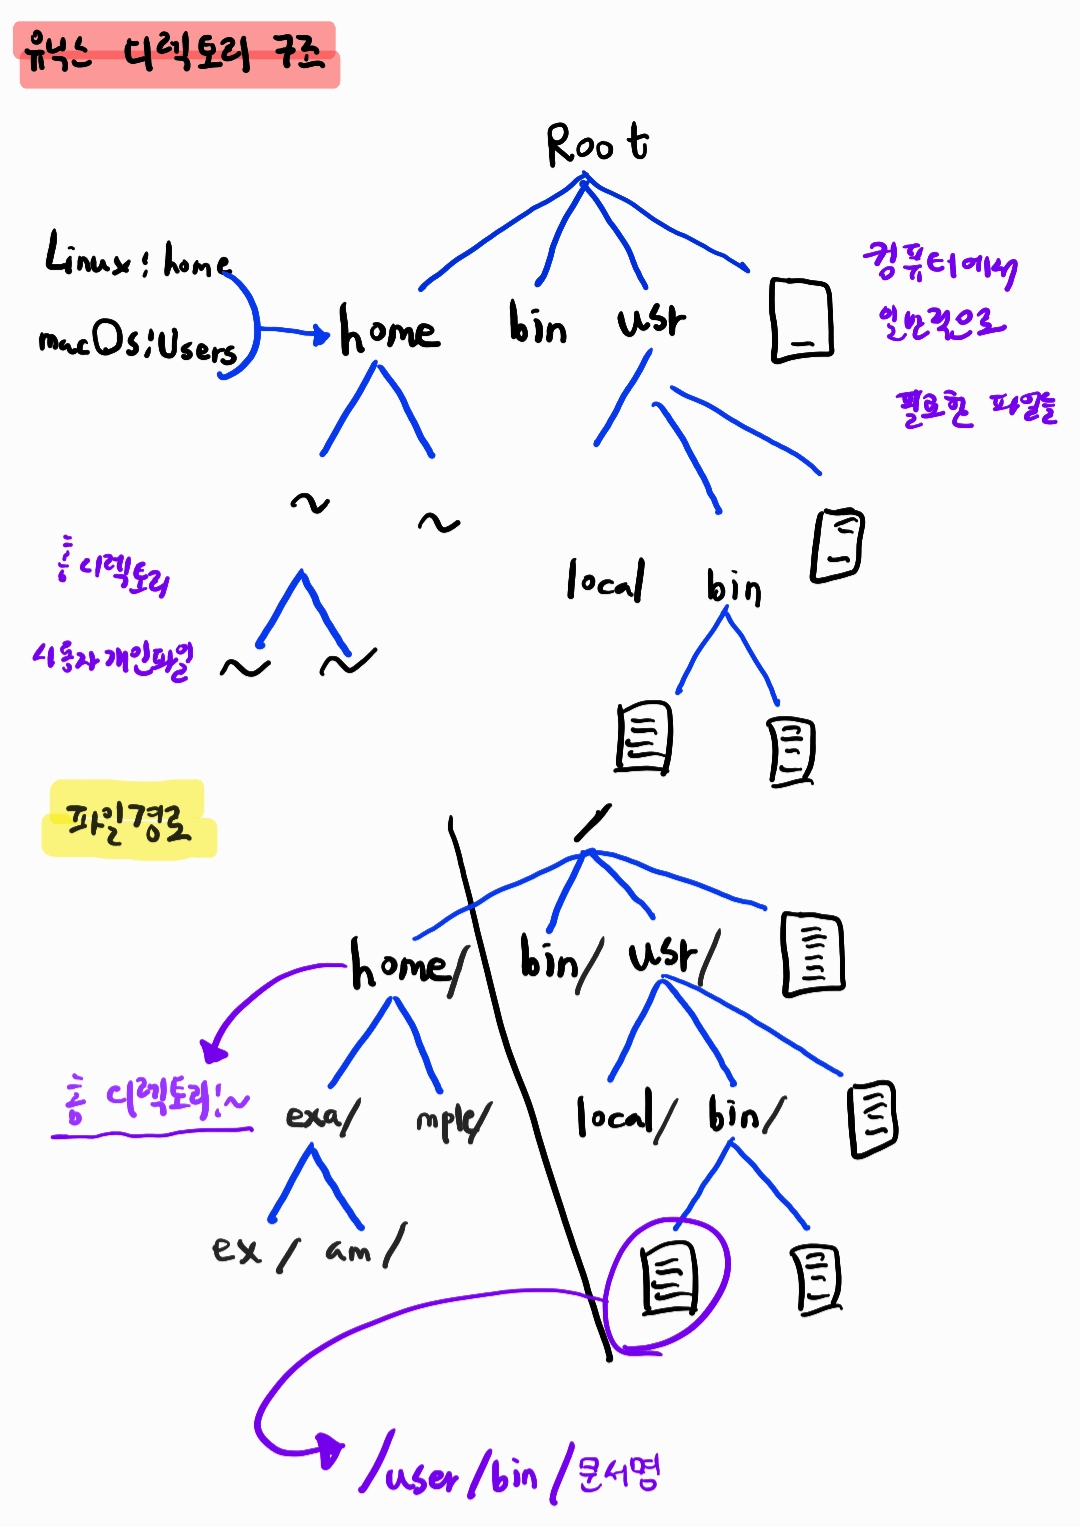 유닉스 디렉토리 구조
Root
Linux : home
macOs : Users
home
bin
usr
컴퓨터에서
일반적으로
필요한 파일들
~
~
홈 디렉토리
사용자 개인파일
~
~
local
bin
파일경로
/
home/
bin/
usr/
홈 디렉토리 : ~
exa/
mple/
local/
bin/
ex /
am /
/user/bin/문서명